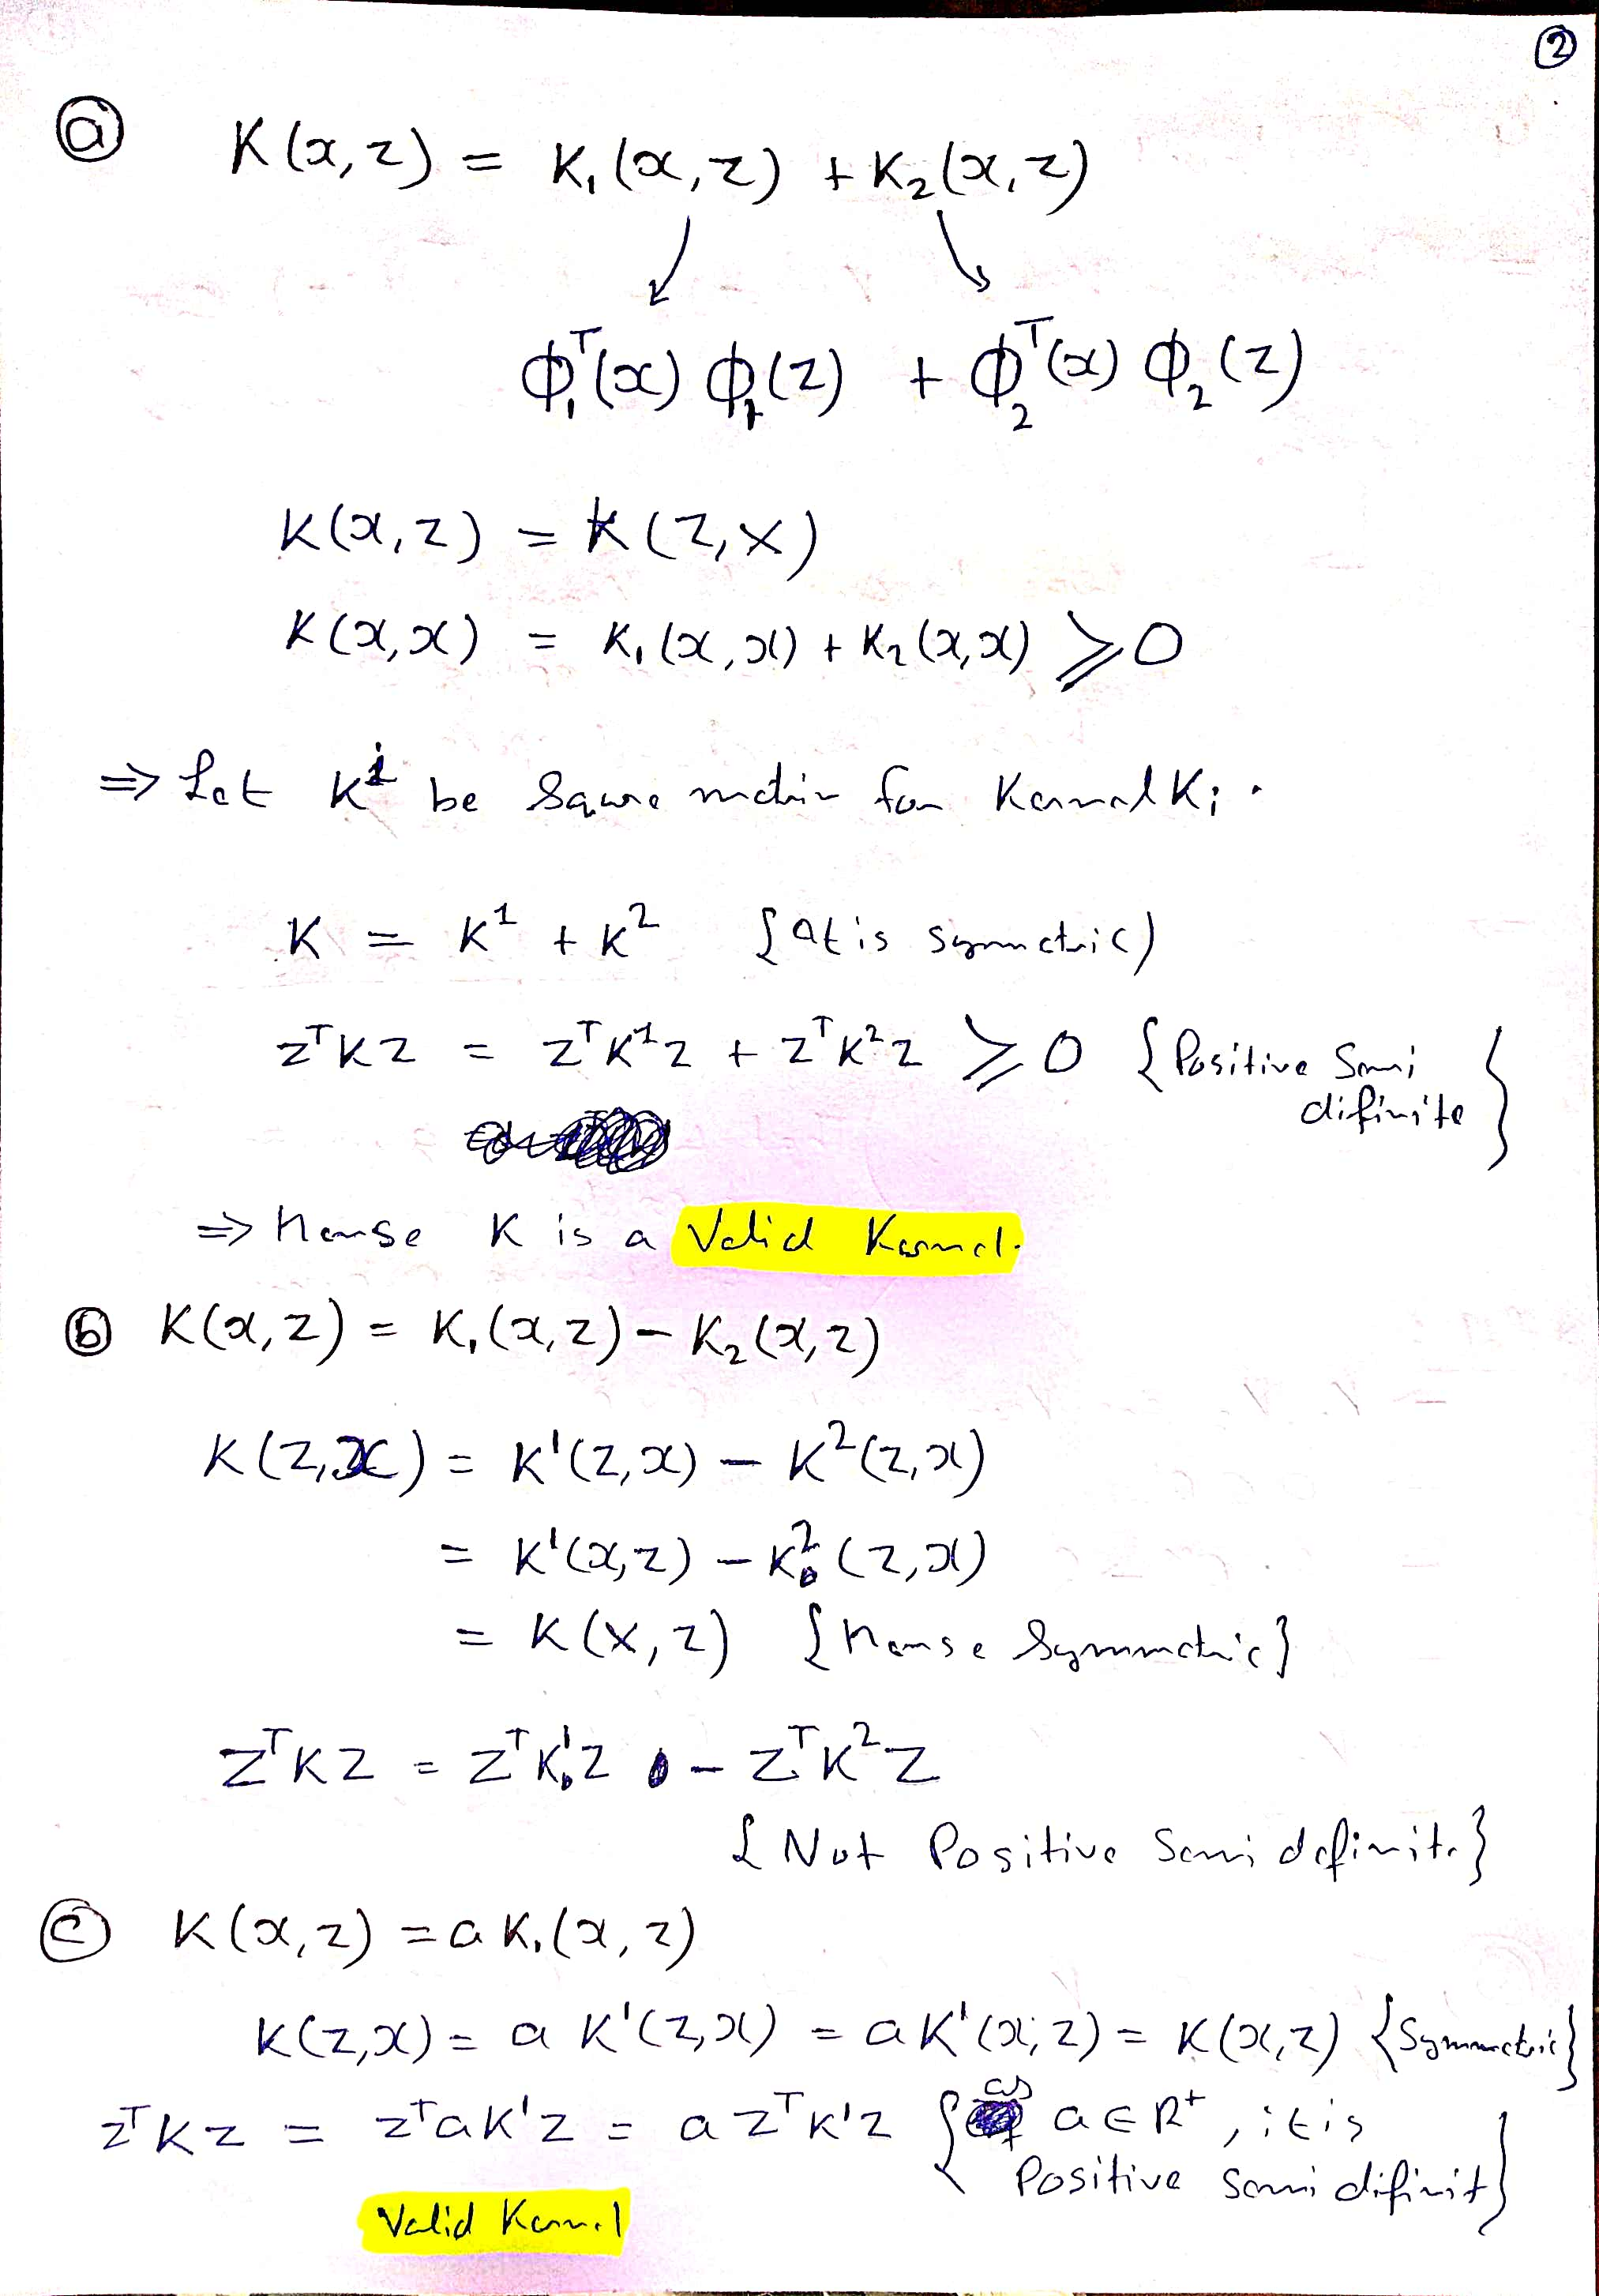 ②
ⓐ K(x,z) = K₁(x,z) + K₂(x,z)
ϕ₁ᵀ(x) ϕ₁(z) + ϕ₂ᵀ(x) ϕ₂(z)
K(x,z) = K(z,x)
K(x,x) = K₁(x,x) + K₂(x,x) ⩾ 0
⇒ Let Kⁱ be Square matrix for Kernel Kᵢ.
K = K¹ + K² {It is symmetric)
zᵀKz = zᵀK¹z + zᵀK²z ⩾ 0 {Positive Semi
difinite}
⇒ Hense K is a Valid Kernel.
ⓑ K(x,z) = K₁(x,z) – K₂(x,z)
K(z,x) = K¹(z,x) – K²(z,x)
= K¹(x,z) – K²(z,x)
= K(x,z) {Hense Symmetric}
zᵀKz = zᵀK¹z – zᵀK²z
{Not Positive Semi definite}
ⓒ K(x,z) = a K₁(x,z)
K(z,x) = a K¹(z,x) = a K¹(x,z) = K(x,z) {Symmetric}
zᵀKz = zᵀaK¹z = a zᵀK¹z {as a ∈ R⁺, it is
Positive semi difinit}
Valid Kernel